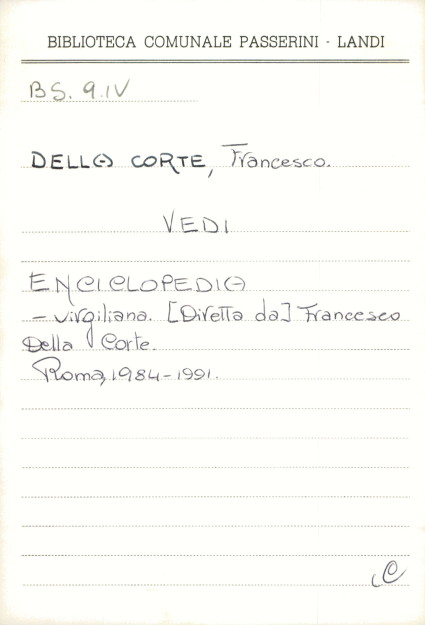 BIBLIOTECA COMUNALE PASSERINI - LANDI
BS. 9.IV
DELLA CORTE, Francesco.
VEDI
ENCICLOPEDIA
- virgiliana. [Diretta da] Francesco
Della Corte.
Roma, 1984-1991.